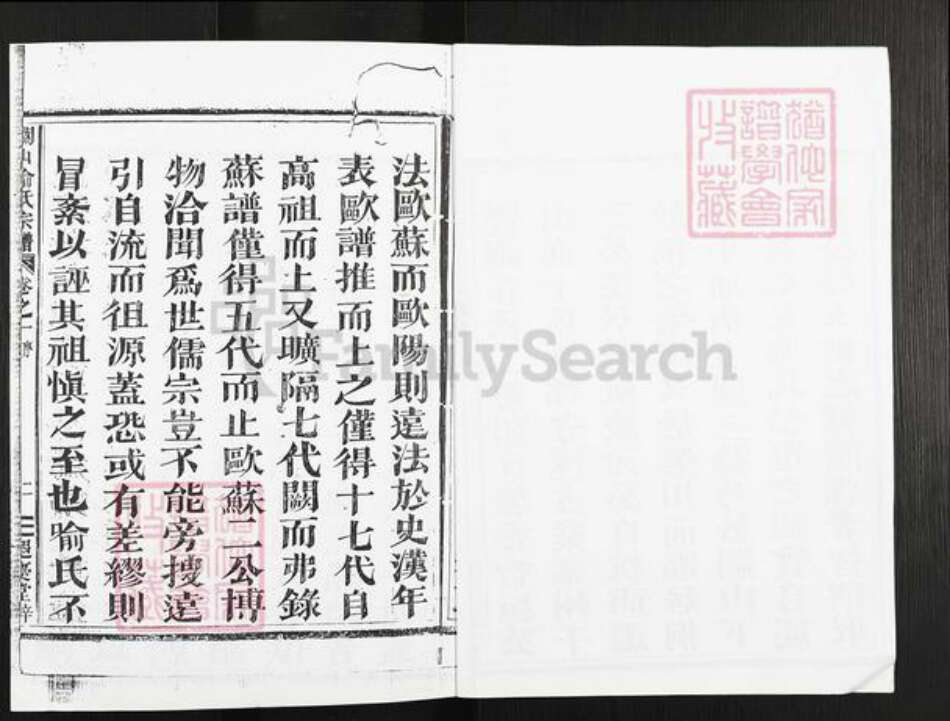 法歐蘇而歐陽則遠法於史漢年
表歐譜推而上之僅得十七代自
高祖而上又曠隔七代闕而弗錄
蘇譜僅得五代而止歐蘇二公博
物洽聞爲世儒宗豈不能旁搜遠
引自流而徂源蓋恐或有差繆則
冒紊以誣其祖愼之至也喻氏不
氏宗譜
卷之一
FamilySearch
譜學會
收藏